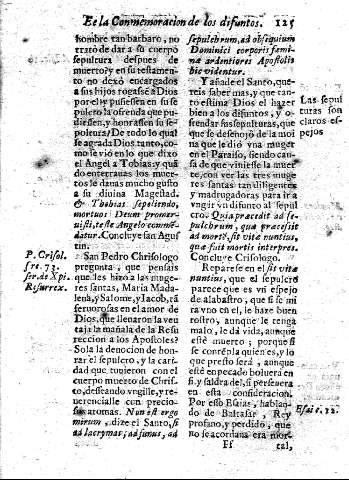 En la Conmemoracion de los difuntos. 125
hombre tan barbaro, no
trató de dar a su cuerpo
sepultura despues de
muerto? y en su testamento
no dexò encargados
a sus hijos rogassē a Dios
por el, y pusiessen en su se
pulcro la ofrenda que pu-
diessen, y honrassen su se-
poltura? De todo lo qual
se agrada Dios tanto, como
se viò en lo que dixo
el Angel a Tobias, y quā
do enterraua los muer-
tos le daua mucho gusto
a su diuina Magestad.
& Thobias sepeliendo,
mortuos Deum promer-
uisti, teste Angelo commē-
datur. Concluye san Agus
tin.
San Pedro Chrisologo
pregunta, que pensais
que les hizo a las muge-
res santas, Maria Mada-
lena, y Salome, y Iacob, tā
feruorosas en el amor de
Dios, que lleuaron la ven
taja a mañala de la Resu
rreccion a los Apostoles?
Sola la deuocion de hon-
rar el sepulcro, y la cari-
dad que tuuieron con el
cuerpo muerto de Chris-
to, desseando vngille, y re-
uerencialle con precio-
sas aromas. Non est ergo
mirum, dize el Santo, si
ad lacrymas, ad funus, ad
P. Crisol.
fre. 73.
ser. de Xpi.
Resurrex.
sepulchrum, ad obsequium
Dominici corporis fœmi-
næ ardentiores Apostolis
hic videntur.
Y añade el Santo, que-
reis saber mas, y que tan-
to estima Dios el hazer
bien a los difuntos, y o-
frendar sus sepulturas, que
que se desenojò de la mo
ina que le diò vna muger
en el Paraiso, siendo cau-
sa de que viniesse la muer
te, con ver las tres muge
res santas tan diligentes
y madrugadoras para ir a
vngir vn difunto al sepul
cro. Quia præcedit ad se-
pulchrum, quæ præcessit
ad mortē, sit vitæ nuntius,
quæ fuit mortis interpres.
Concluye Crisologo.
Reparese en el sit vitæ
nuntius, que el sepulcro
parece que es vn espejo
de alabastro, que si se mi
ra vno en el, le haze buen
rostro, aunque le tenga
malo, le dà vida, aunque
estè muerto; porque si
se confessa quien es, y lo
que presto serà, aunque
estè enpecado boluerà en
si, y saldra del, si perseuera
en esta consideracion.
Por esso Esaias, hablan-
do de Baltasar, Rey
profano, y perdido, que
no se acordaua era mor-
Ff tal,
Las sepul
turas son
claros es-
pejos
Esai c. 22.